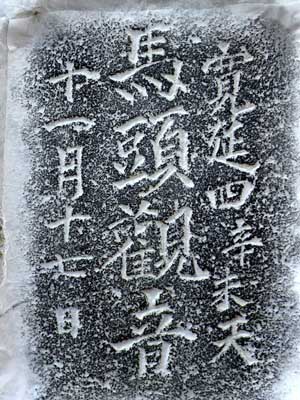 寛延四辛未天
馬頭觀音
十一月十七日